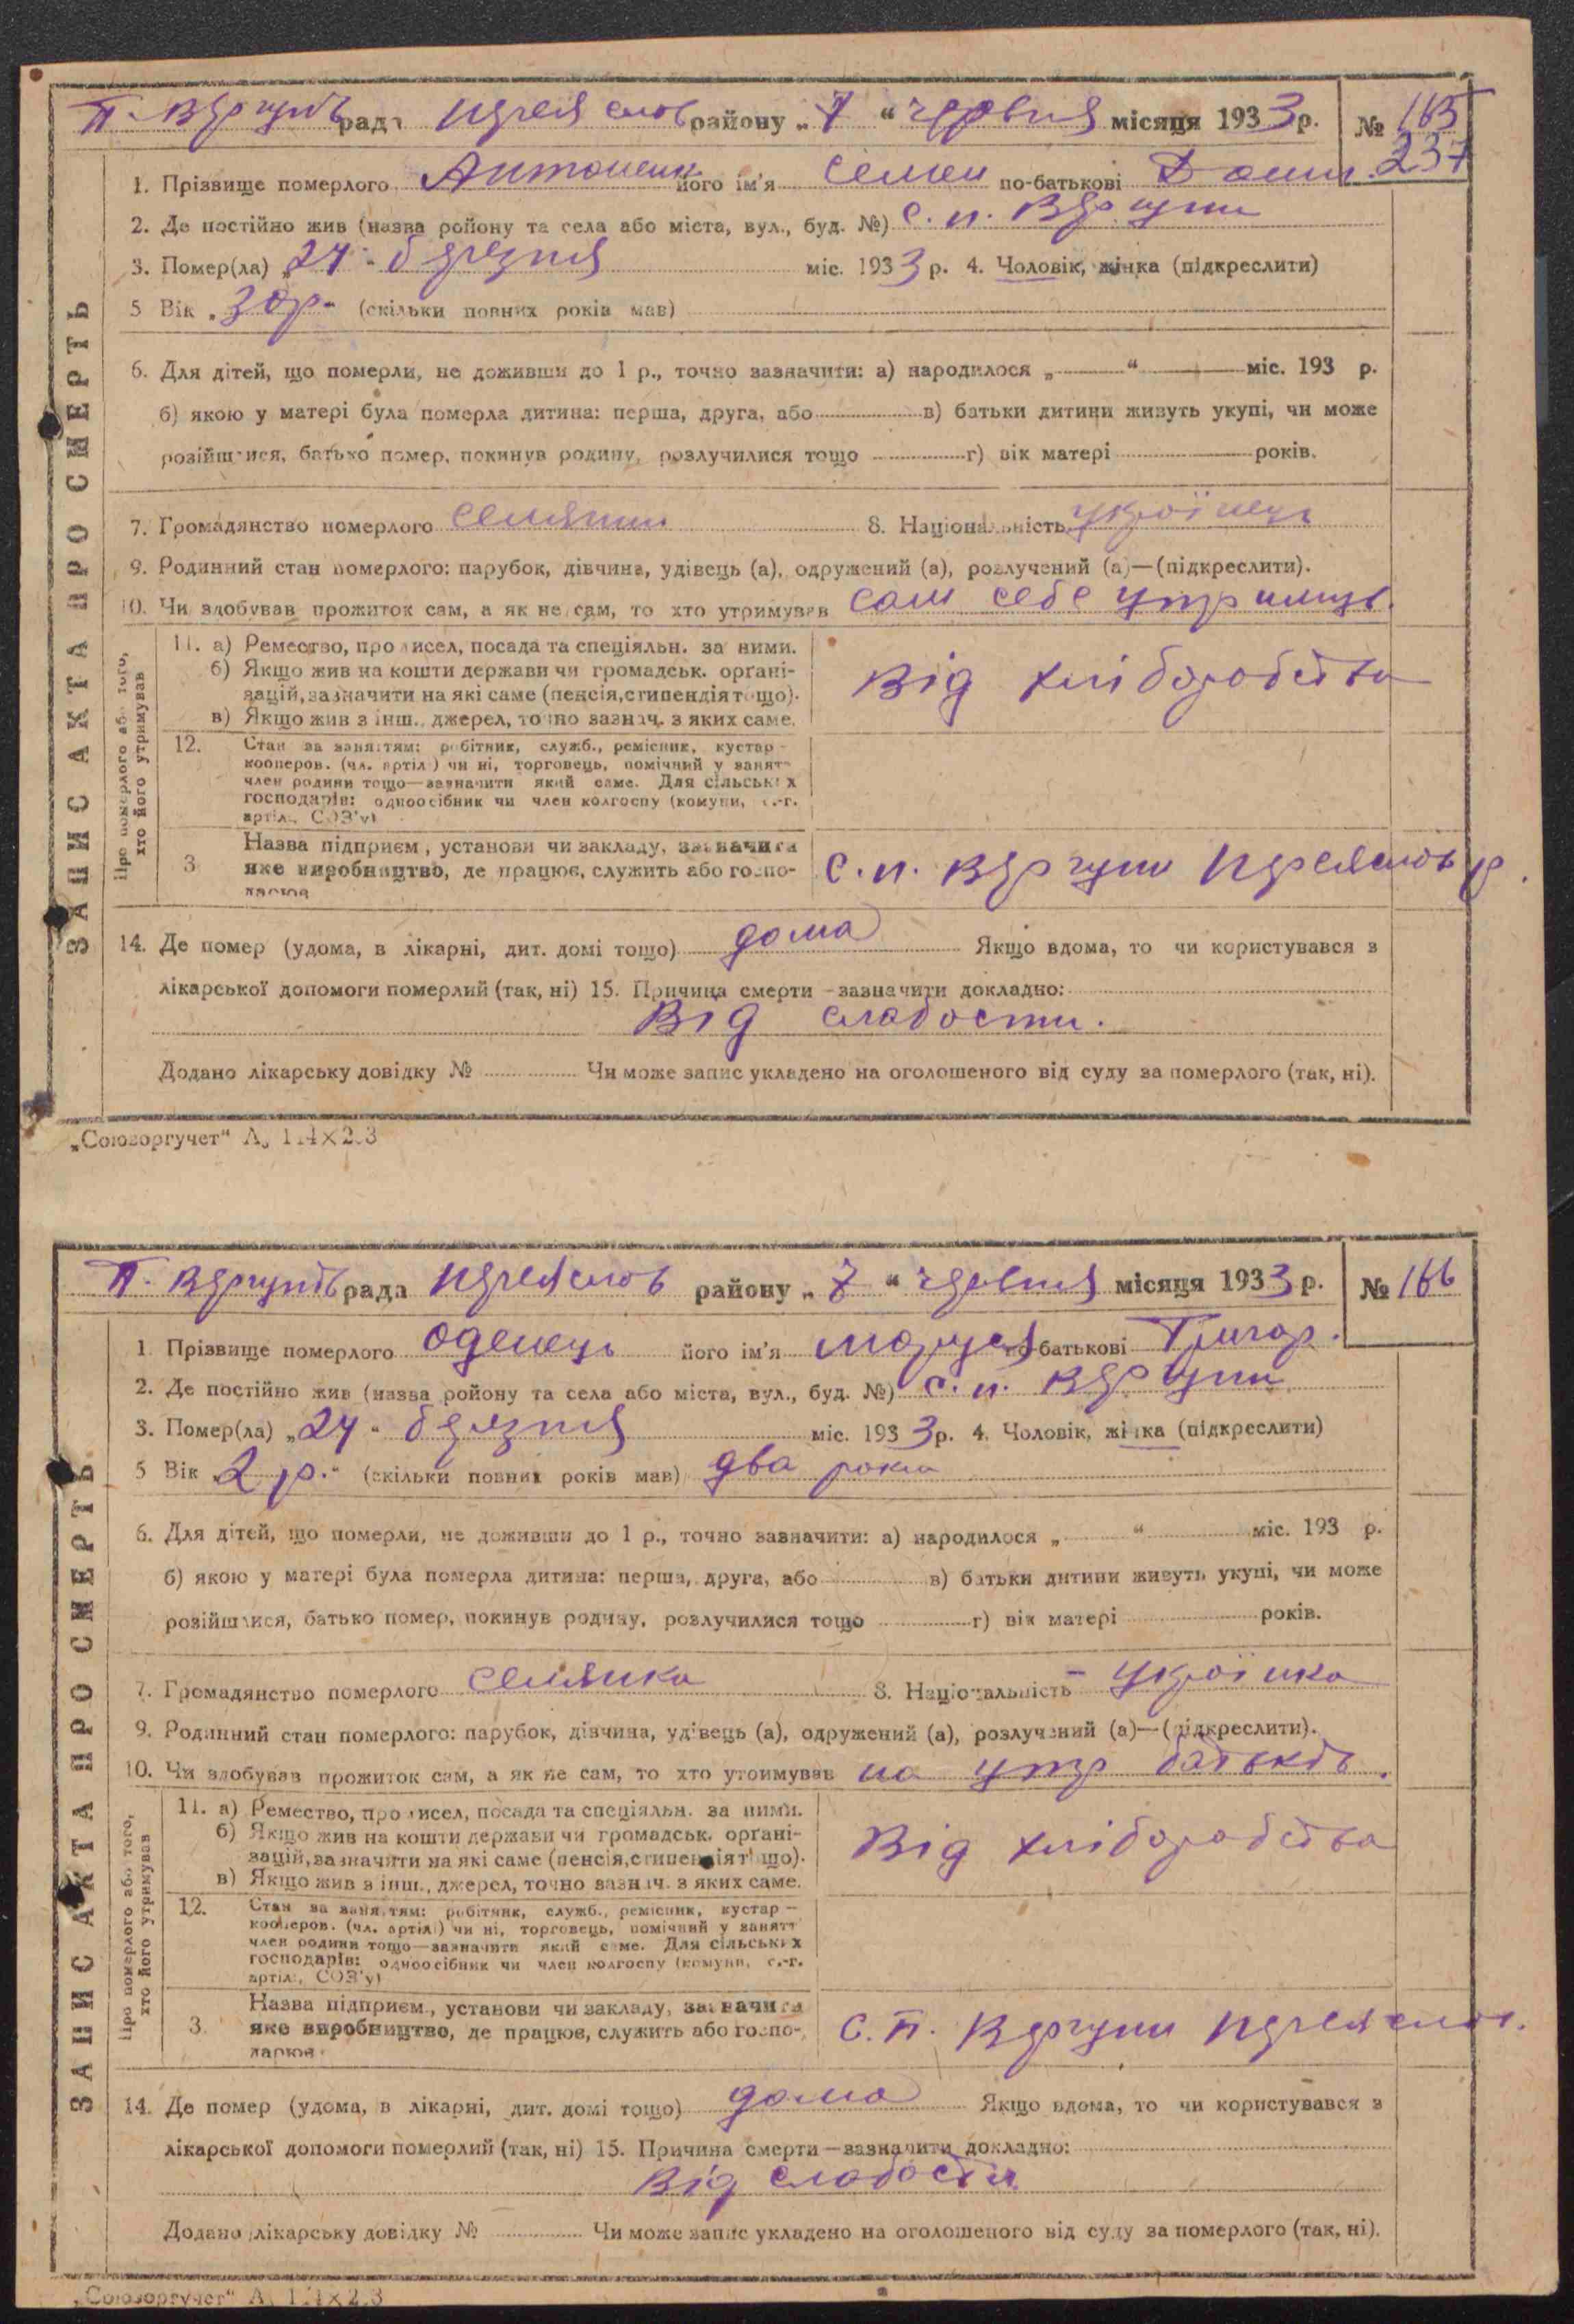 П. Вергунів рада Переяслов району „7“ червня місяця 1933 р. № 165
237
1. Прізвище померлого Антоненк його ім'я Семен по-батькові
2. Де постійно жив (назва ройону та села або міста, вул., буд. №) с. п. Вергуни
3. Помер(ла) „24“ березня міс. 1933 р. 4. Чоловік, жінка (підкреслити)
5 Вік 30 р. (скільки повних років мав)
6. Для дітей, що померли, не доживши до 1 р., точно зазначити: а) народилося „ “ міс. 193 р.
б) якою у матері була померла дитина: перша, друга, або в) батьки дитини живуть укупі, чи може
розійшлися, батько помер, покинув родину, розлучилися тощо г) вік матері років.
7. Громадянство померлого селянин 8. Національність українець
9. Родинний стан померлого: парубок, дівчина, удівець (а), одружений (а), розлучений (а)—(підкреслити).
10. Чи здобував прожиток сам, а як не сам, то хто утримував сам себе утримує.
ЗАПИС АКТА ПРО СМЕРТЬ
Про померлого або того, хто його утримував
11. а) Ремество, промисел, посада та спеціяльн. за ними.
б) Якщо жив на кошти держави чи громадськ. орґані-
зацій, зазначити на які саме (пенсія, стипендія тощо).
в) Якщо жив з інш. джерел, точно зазнач. з яких саме.
Від хліборобства
12. Стан за заняттям: робітник, служб., ремісник, кустар—
кооперов. (чл. артілі) чи ні, торговець, помічний у занятт
член родини тощо—зазначити який саме. Для сільських
господарів: одноосібник чи член колгоспу (комуни, с.-г.
артілі, СОЗ'у)
3 Назва підприєм., установи чи закладу, зазначити
яке виробництво, де працює, служить або госпо-
дарює
с. п. Вергуни Переяслов р.
14. Де помер (удома, в лікарні, дит. домі тощо) дома Якщо вдома, то чи користувався з
лікарської допомоги померлий (так, ні) 15. Причина смерти—зазначити докладно:
Від слабости.
Додано лікарську довідку № Чи може запис укладено на оголошеного від суду за померлого (так, ні).
„Союзоргучет“
П. Вергунів рада Переяслов району „7“ червня місяця 1933 р. № 166
1. Прізвище померлого Оденець його ім'я Маруся по-батькові Григор.
2. Де постійно жив (назва ройону та села або міста, вул., буд. №) с. п. Вергуни
3. Помер(ла) „24“ березня міс. 1933 р. 4. Чоловік, жінка (підкреслити)
5 Вік 2 р. (скільки повних років мав) два роки
6. Для дітей, що померли, не доживши до 1 р., точно зазначити: а) народилося „ “ міс. 193 р.
б) якою у матері була померла дитина: перша, друга, або в) батьки дитини живуть укупі, чи може
розійшлися, батько помер, покинув родину, розлучилися тощо г) вік матері років.
7. Громадянство померлого селянка 8. Національність - українка
9. Родинний стан померлого: парубок, дівчина, удівець (а), одружений (а), розлучений (а)—(підкреслити).
10. Чи здобував прожиток сам, а як не сам, то хто утоимував на утр батьків.
ЗАПИС АКТА ПРО СМЕРТЬ
Про померлого або того, хто його утримував
11. а) Ремество, промисел, посада та спеціяльн. за ними.
б) Якщо жив на кошти держави чи громадськ. орґані-
зацій, зазначити на які саме (пенсія, стипендія тощо).
в) Якщо жив з інш., джерел, точно зазнач. з яких саме.
Від хліборобства
12. Стан за заняттям: робітник, служб., ремісник, кустар—
кооперов. (чл. артілі) чи ні, торговець, помічний у занятт
член родини тощо—зазначити який саме. Для сільських
господарів: одноосібник чи член колгоспу (комуни, с.-г.
артілі, СОЗ'у)
3. Назва підприєм., установи чи закладу, зазначити
яке виробництво, де працює, служить або госпо-
дарює
с. п. Вергуни Переяслов.
14. Де помер (удома, в лікарні, дит. домі тощо) дома Якщо вдома, то чи користувався з
лікарської допомоги померлий (так, ні) 15. Причина смерти—зазначити докладно:
Від слабости
Додано лікарську довідку № Чи може запис укладено на оголошеного від суду за померлого (так, ні).
„Союзоргучет“